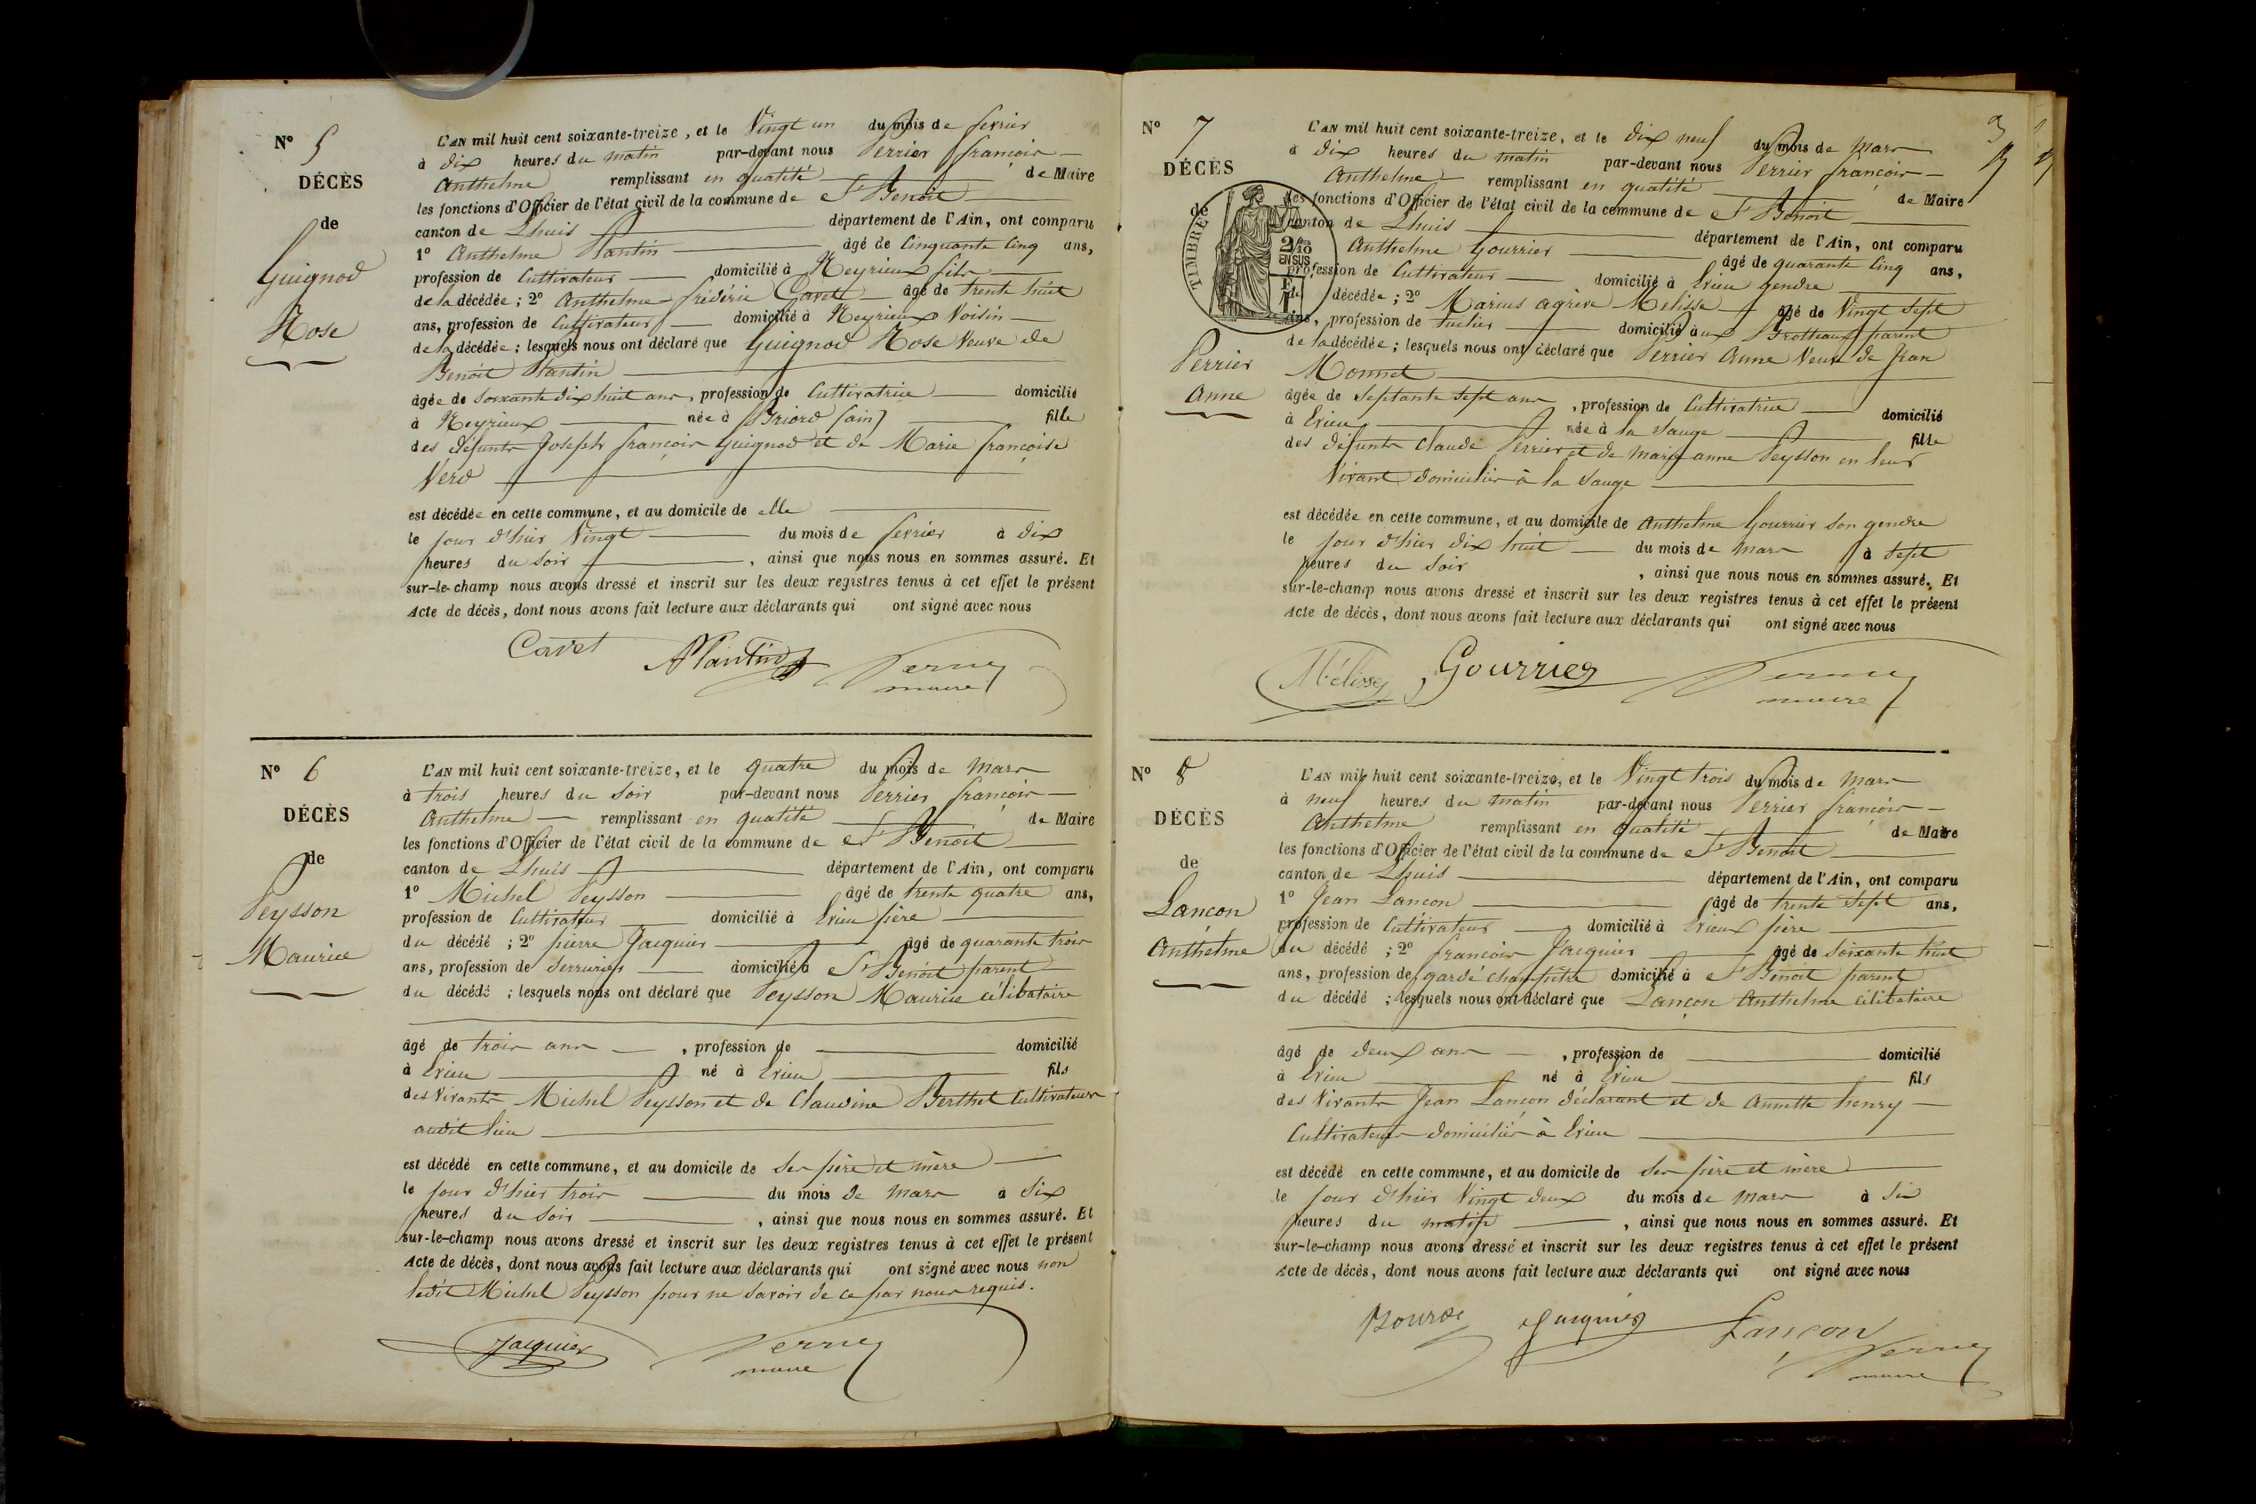 N° 5
DÉCÈS
de
Guignod
Rose
L'AN mil huit cent soixante-treize, et le Vingt un du mois de fevrier
à dix heures du matin par-devant nous Perrier françois
Anthelme remplissant en qualité de Maire
les fonctions d'Officier de l'état civil de la commune de St Benoit
canton de Lhuis département de l'Ain, ont comparu
1° Anthelme Plantin âgé de Cinquante Cinq ans,
profession de Cultivateur domicilié à Meyrieux fils
de la décédée; 2° Anthelme frédéric Cavet âgé de trente huit
ans, profession de Cultivateur domicilié à Meyrieux Voisin
de la décédée; lesquels nous ont déclaré que Guignod Rose Veuve de
Benoit Plantin
âgée de soixante dix huit ans, profession de Cultivatrice domicilié
à Meyrieux née à Briord (ain) fille
des défunts Joseph françois Guignod et de Marie françoise
Verd
est décédée en cette commune, et au domicile de elle
le jour d'hier Vingt du mois de fevrier à dix
heures du soir, ainsi que nous nous en sommes assuré. Et
sur-le-champ nous avons dressé et inscrit sur les deux registres tenus à cet effet le présent
Acte de décès, dont nous avons fait lecture aux déclarants qui ont signé avec nous
Cavet APlantin Perrier
maire
N° 6
DÉCÈS
de
Peysson
Maurice
L'AN mil huit cent soixante-treize, et le quatre du mois de Mars
à trois heures du soir par-devant nous Perrier françois
Anthelme remplissant en qualité de Maire
les fonctions d'Officier de l'état civil de la commune de St Benoit
canton de Lhuis département de l'Ain, ont comparu
1° Michel Peysson âgé de trente quatre ans,
profession de Cultivateur domicilié à Evieu père
du décédé; 2° pierre Jacquier âgé de quarante trois
ans, profession de serrurier domicilié à St Benoit parent
du décédé; lesquels nous ont déclaré que Peysson Maurice célibataire
âgé de trois ans, profession de domicilié
à Evieu né à Evieu fils
des Vivants Michel Peysson et de Claudine Berthet Cultivateurs
audit lieu
est décédé en cette commune, et au domicile de ses père et mère
le jour d'hier trois du mois de Mars à Six
heures du soir, ainsi que nous nous en sommes assuré. Et
sur-le-champ nous avons dressé et inscrit sur les deux registres tenus à cet effet le présent
Acte de décès, dont nous avons fait lecture aux déclarants qui ont signé avec nous non
ledit Michel Peysson pour ne savoir de ce par nous requis.
Jacquier Perrier
maire
3
N° 7
DÉCÈS
de
TIMBRE
2/10 EN SUS
Perrier
Anne
L'AN mil huit cent soixante-treize, et le dix neuf du mois de Mars
à dix heures du matin par-devant nous Perrier françois
Anthelme remplissant en qualité de Maire
les fonctions d'Officier de l'état civil de la commune de St Benoit
canton de Lhuis département de l'Ain, ont comparu
Anthelme Gourrier âgé de quarante Cinq ans,
profession de Cultivateur domicilié à Evieu gendre
décédée; 2° Marius agrève Mélisse âgé de Vingt Sept
ans, profession de tuilier domicilié aux Brotteaux parent
de la décédée; lesquels nous ont déclaré que Perrier Anne Veuve de Jean
Monnet
âgée de septante sept ans, profession de Cultivatrice domicilié
à Evieu née à la Sauge fille
des défunts Claude Perrier et de marie anne Peysson en leur
Vivant domiciliés à la Sauge
est décédée en cette commune, et au domicile de Anthelme Gourrier son gendre
le jour d'hier dix huit du mois de mars à Sept
heures du soir, ainsi que nous nous en sommes assuré. Et
sur-le-champ nous avons dressé et inscrit sur les deux registres tenus à cet effet le présent
Acte de décès, dont nous avons fait lecture aux déclarants qui ont signé avec nous
Mélisse Gourrier Perrier
maire
N° 8
DÉCÈS
de
Lançon
Anthelme
L'AN mil huit cent soixante-treize, et le Vingt trois du mois de Mars
à neuf heures du matin par-devant nous Perrier françois
Anthelme remplissant en qualité de Maire
les fonctions d'Officier de l'état civil de la commune de St Benoit
canton de Lhuis département de l'Ain, ont comparu
1° Jean Lançon âgé de trente Sept ans,
profession de Cultivateur domicilié à Evieu père
du décédé; 2° françois Jacquier âgé de soixante huit
ans, profession de garde champêtre domicilié à St Benoit parent
du décédé; lesquels nous ont déclaré que Lançon Anthelme célibataire
âgé de deux ans, profession de domicilié
à Evieu né à Evieu fils
des Vivants Jean Lançon déclarant et de Annette henry
Cultivateurs domiciliés à Evieu
est décédé en cette commune, et au domicile de ses père et mère
le jour d'hier Vingt deux du mois de Mars à Six
heures du matin, ainsi que nous nous en sommes assuré. Et
sur-le-champ nous avons dressé et inscrit sur les deux registres tenus à cet effet le présent
Acte de décès, dont nous avons fait lecture aux déclarants qui ont signé avec nous
Jacquier Lançon
Perrier
maire